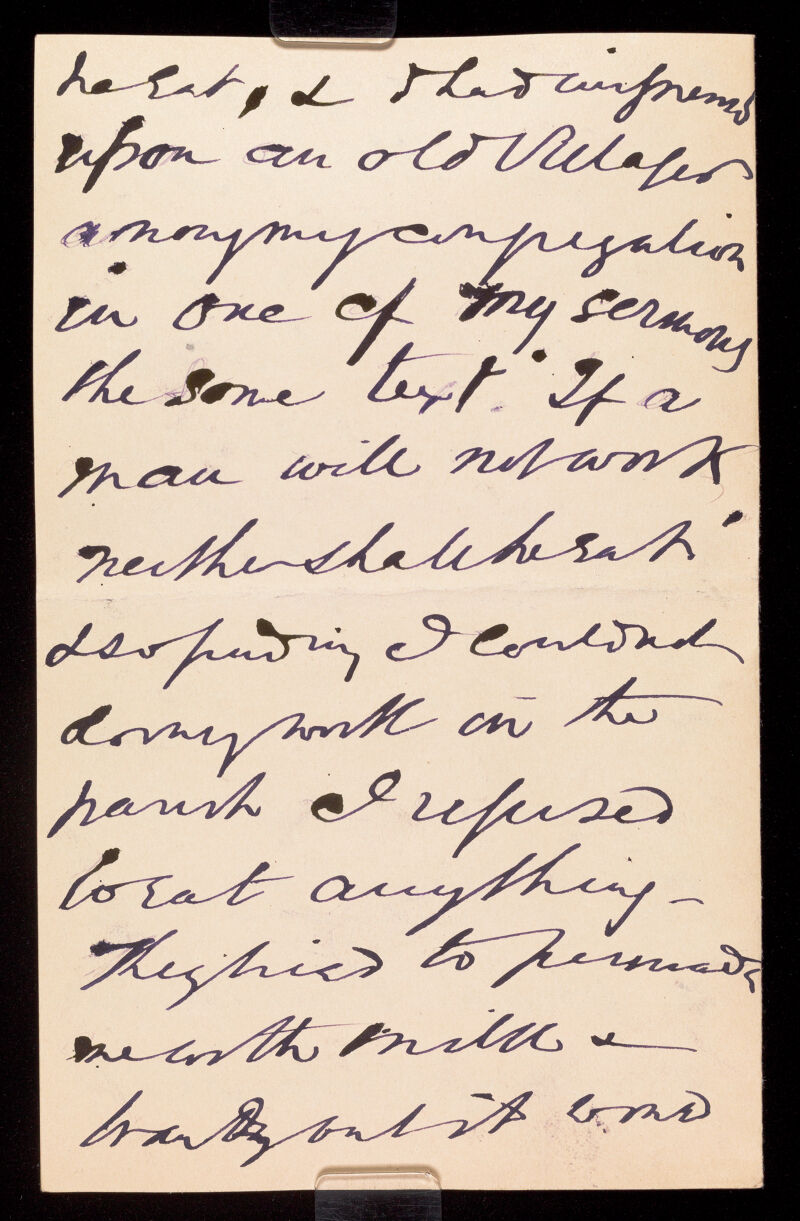 he eat, & I had impressed
upon an old Villager
among my congregation
in one of my sermons
the some text "If a
man will not work
neither shall he eat"
& so finding I could not
do my work in the
parish I refused
to eat anything -
They tried to persuade
me with milk &
brandy but it would